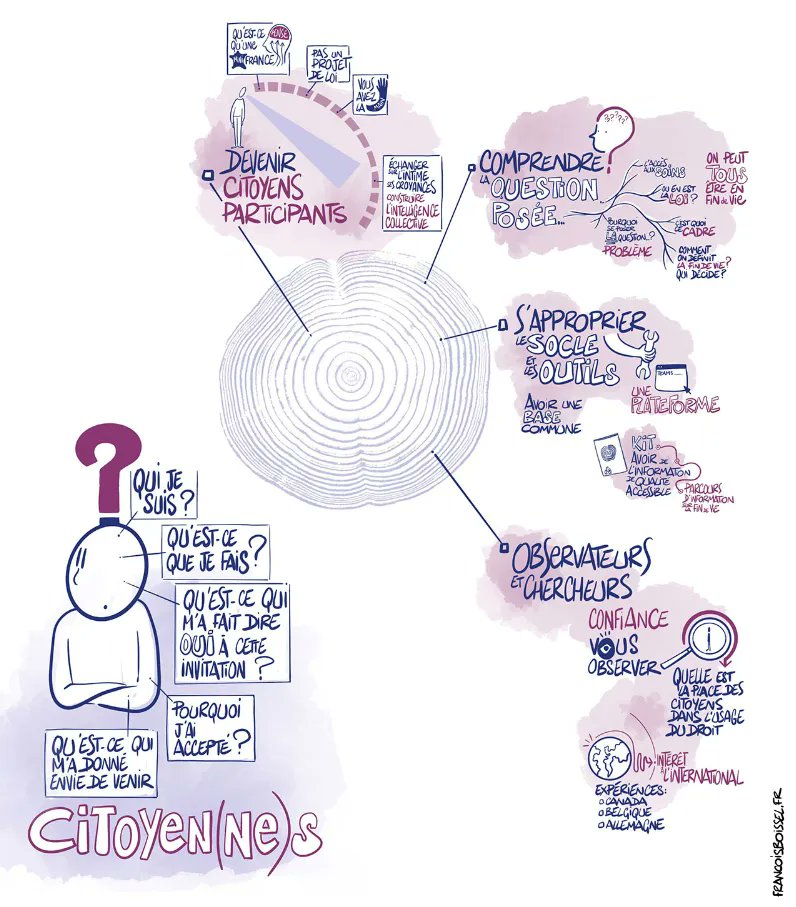 QU'EST-CE
QU'UNE
MINI FRANCE
PENSE
PAS UN
PROJET
DE LOI
VOUS
AVEZ
LA
ÉCHANGER
SUR L'INTIME
SES CROYANCES
CONSTRUIRE
L'INTELLIGENCE
COLLECTIVE
DEVENIR
CITOYENS
PARTICIPANTS
????
COMPRENDRE
LA QUESTION
POSÉE...
L'ACCÈS
AUX SOINS
OÙ EN EST
LA LOI?
C'EST QUOI
LE CADRE
COMMENT
ON DÉFINIT
LA FIN DE VIE?
QUI DÉCIDE?
POURQUOI
SE POSER
LA QUESTION...?
PROBLÈME
ON PEUT
TOUS
ÊTRE EN
FIN DE VIE
S'APPROPRIER
LE SOCLE
ET
LES OUTILS
AVOIR UNE
BASE
COMMUNE
TEAMS
UNE
PLATEFORME
KIT
AVOIR DE
L'INFORMATION
DE QUALITÉ
ACCESSIBLE
PARCOURS
D'INFORMATION
SUR LA FIN DE VIE
OBSERVATEURS
ET CHERCHEURS
CONFIANCE
VOUS
OBSERVER
i
QUELLE EST
LA PLACE DES
CITOYENS
DANS L'USAGE
DU DROIT
INTÉRÊT
À L'INTERNATIONAL
EXPÉRIENCES:
o CANADA
o BELGIQUE
o ALLEMAGNE
?
QUI JE
SUIS?
QU'EST-CE
QUE JE FAIS?
QU'EST-CE QUI
M'A FAIT DIRE
OUI À CETTE
INVITATION ?
POURQUOI
J'AI
ACCEPTÉ?
QU'EST-CE QUI
M'A DONNÉ
ENVIE DE VENIR
CITOYEN(NE)S
FRANCOISBOISSEL.FR